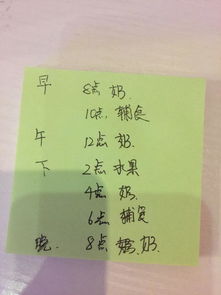 早 8点 奶.
10点, 辅食
午 12点 奶.
下 2点 水果
4点 奶.
6点 辅食
晚. 8点 奶.